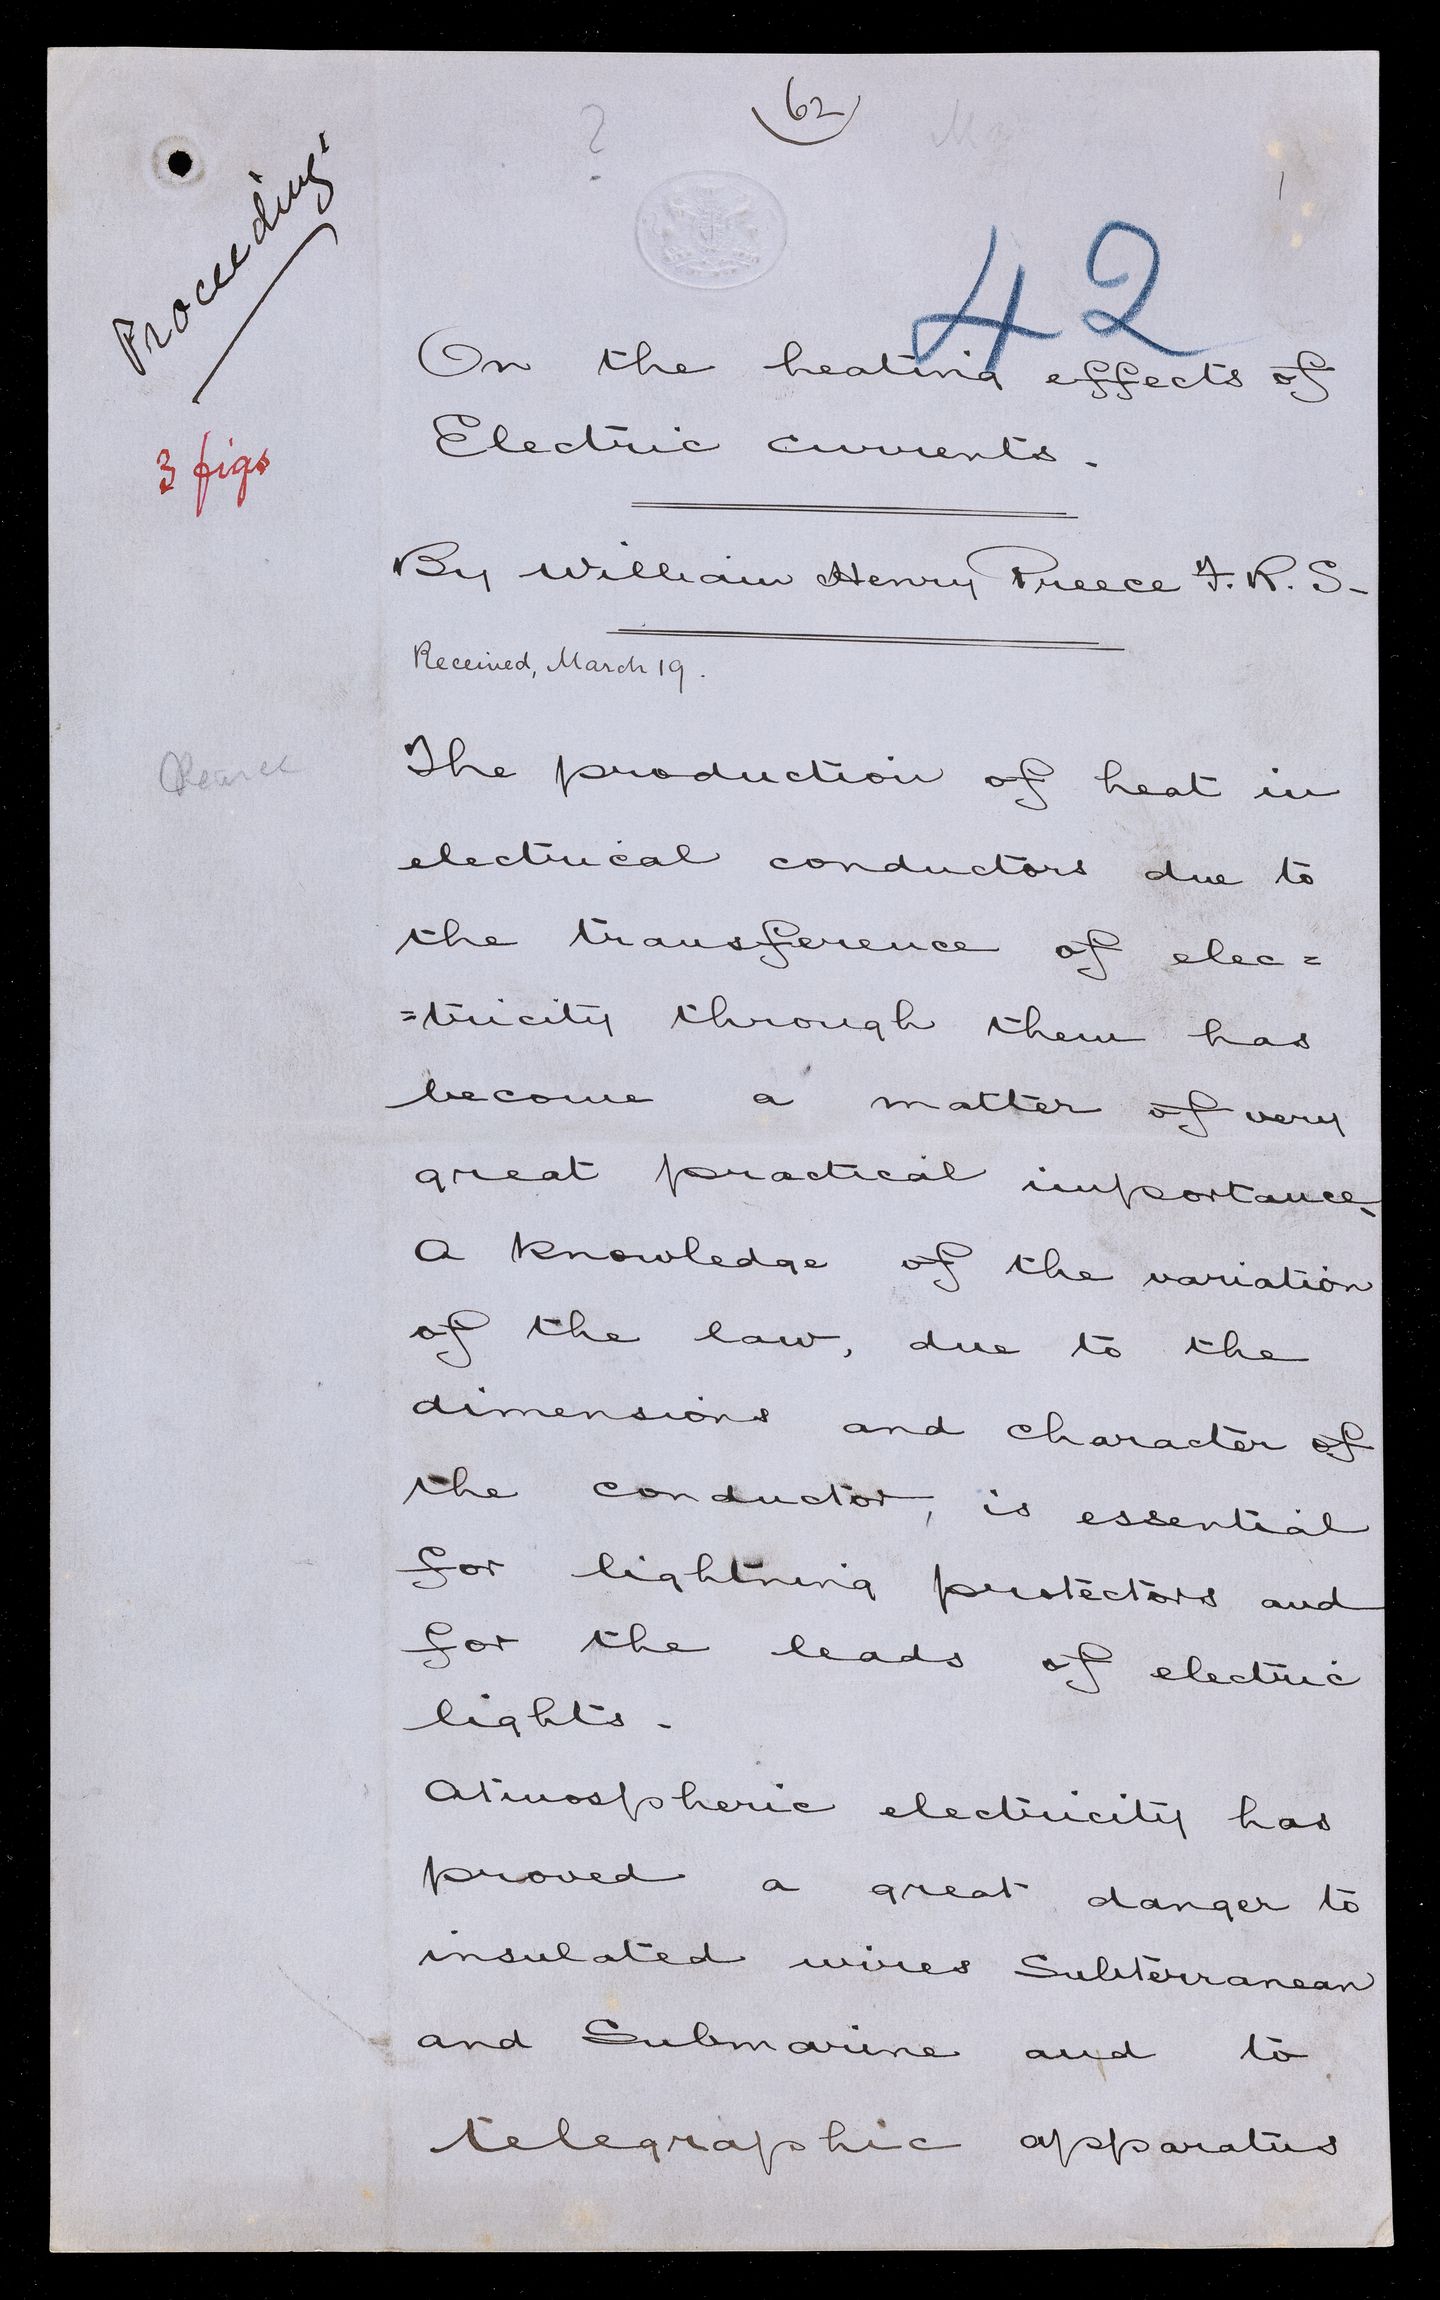 62
?
1
Proceedings
42
On the heating effects of
Electric currents.
3 figs
By William Henry Preece F.R.S.
Received, March 19.
The production of heat in
electrical conductors due to
the transference of elec=
=tricity through them has
become a matter of very
great practical importance.
A knowledge of the variation
of the law, due to the
dimensions and character of
the conductor, is essential
for lightning protectors and
for the leads of electric
lights.
Atmospheric electricity has
proved a great danger to
insulated wires Subterranean
and Submarine and to
telegraphic apparatus